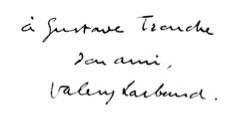 à Gustave Tronche
son ami,
Valery Larbaud.